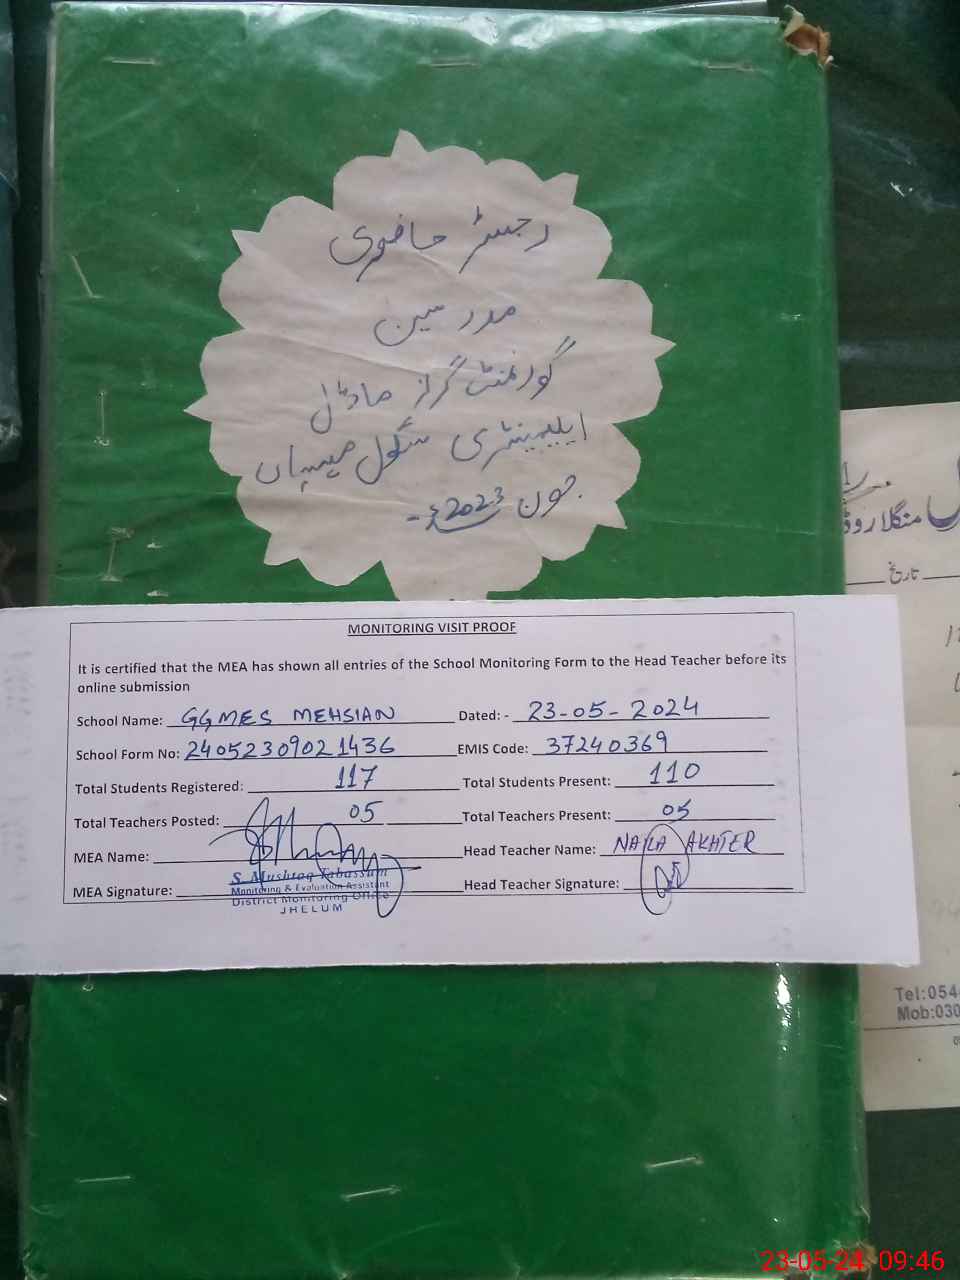 رجسٹر حاضری
مدرسین
گورنمنٹ گرلز ماڈل
ایلیمینٹری سکول میسیاں
جون 2023ء
منگلا روڈ
تاریخ
MONITORING VISIT PROOF
It is certified that the MEA has shown all entries of the School Monitoring Form to the Head Teacher before its
online submission
School Name: GGMES MEHSIAN Dated: - 23-05-2024
School Form No: 24052309021436 EMIS Code: 37240369
Total Students Registered: 117 Total Students Present: 110
Total Teachers Posted: 05 Total Teachers Present: 05
MEA Name: Head Teacher Name: NAILA AKHTER
MEA Signature: Head Teacher Signature:
S. Mushtaq Tabassum
Monitoring & Evaluation Assistant
District Monitoring Office
JHELUM
Tel:054
Mob:030
23-05-24 09:46